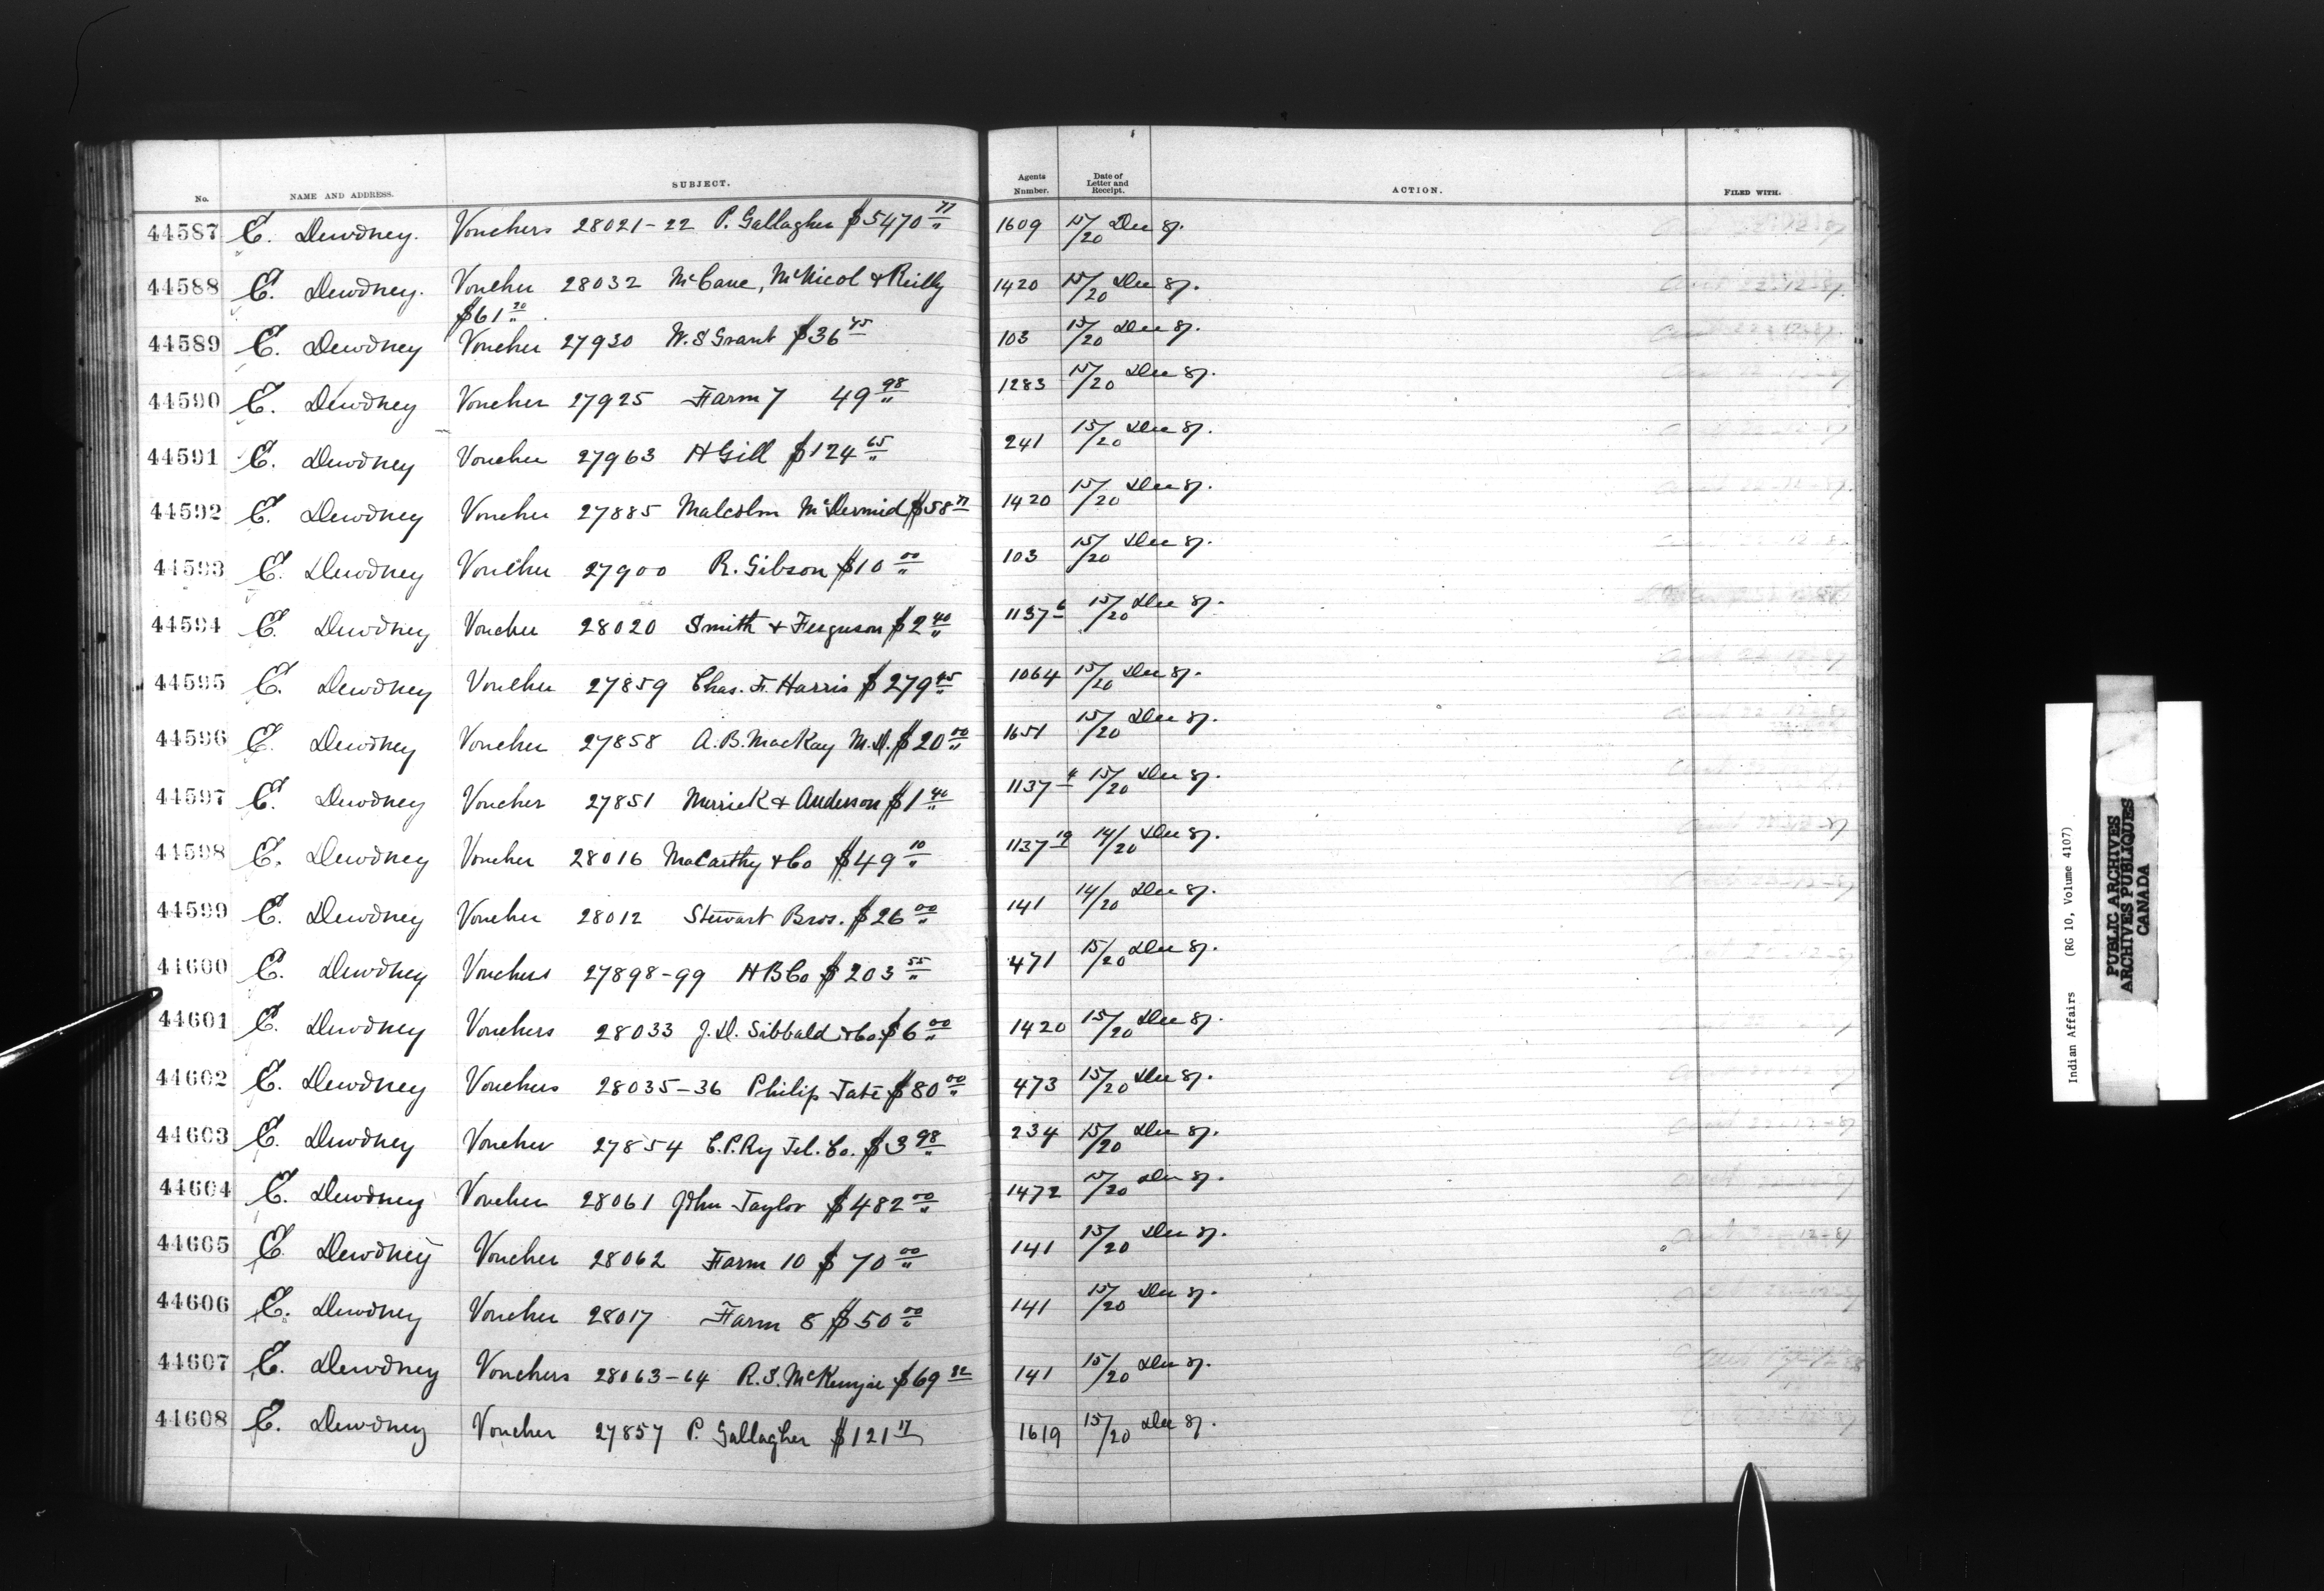 No. NAME AND ADDRESS. SUBJECT. Agents Number. Date of Letter and Receipt. ACTION. FILED WITH.
44587 E. Dewdney. Vouchers 28021-22 P. Gallagher $5470 77 1609 15/20 Dec 87.
44588 E. Dewdney. Voucher 28032 McCane, McNicol & Reilly 1420 15/20 Dec 87.
$61 20
44589 E. Dewdney Voucher 27930 W. S Grant $36 45 103 15/20 Dec 87.
44590 E. Dewdney Voucher 27925 Farm 7 49 98 1283 15/20 Dec 87.
44591 E. Dewdney Voucher 27963 H Gill $124 65 241 15/20 Dec 87.
44592 E. Dewdney Voucher 27885 Malcolm McDermid $58 77 1420 15/20 Dec 87.
44593 E. Dewdney Voucher 27900 R. Gibson $10 00 103 15/20 Dec 87.
44594 E. Dewdney Voucher 28020 Smith & Ferguson $2 40 1137 6 15/20 Dec 87.
44595 E. Dewdney Voucher 27859 Chas. F. Harris $279 45 1064 15/20 Dec 87.
44596 E. Dewdney Voucher 27858 A. B. MacKay M.D. $20 00 1651 15/20 Dec 87.
44597 E. Dewdney Voucher 27851 Merrick & Anderson $1 40 1137 4 15/20 Dec 87.
44598 E. Dewdney Voucher 28016 McCarthy & Co $49 10 1137 19 14/20 Dec 87.
44599 E. Dewdney Voucher 28012 Stewart Bros. $26 00 141 14/20 Dec 87.
44600 E. Dewdney Vouchers 27898-99 H B Co $203 55 471 15/20 Dec 87.
44601 E. Dewdney Vouchers 28033 J. D. Sibbald & Co. $6 00 1420 15/20 Dec 87.
44602 E. Dewdney Vouchers 28035-36 Philip Tate $80 00 473 15/20 Dec 87.
44603 E. Dewdney Voucher 27854 C. P. Ry Tel. Co. $3 98 234 15/20 Dec 87.
44604 E. Dewdney Voucher 28061 John Taylor $482 00 1472 15/20 Dec 87.
44605 E. Dewdney Voucher 28062 Farm 10 $70 00 141 15/20 Dec 87.
44606 E. Dewdney Voucher 28017 Farm 8 $50 00 141 15/20 Dec 87.
44607 E. Dewdney Vouchers 28063-64 R. S. McKenzie $69 82 141 15/20 Dec 87.
44608 E. Dewdney Voucher 27857 P. Gallagher $121 17 1619 15/20 Dec 87.
Indian Affairs (RG 10, Volume 4107)
PUBLIC ARCHIVES
ARCHIVES PUBLIQUES
CANADA